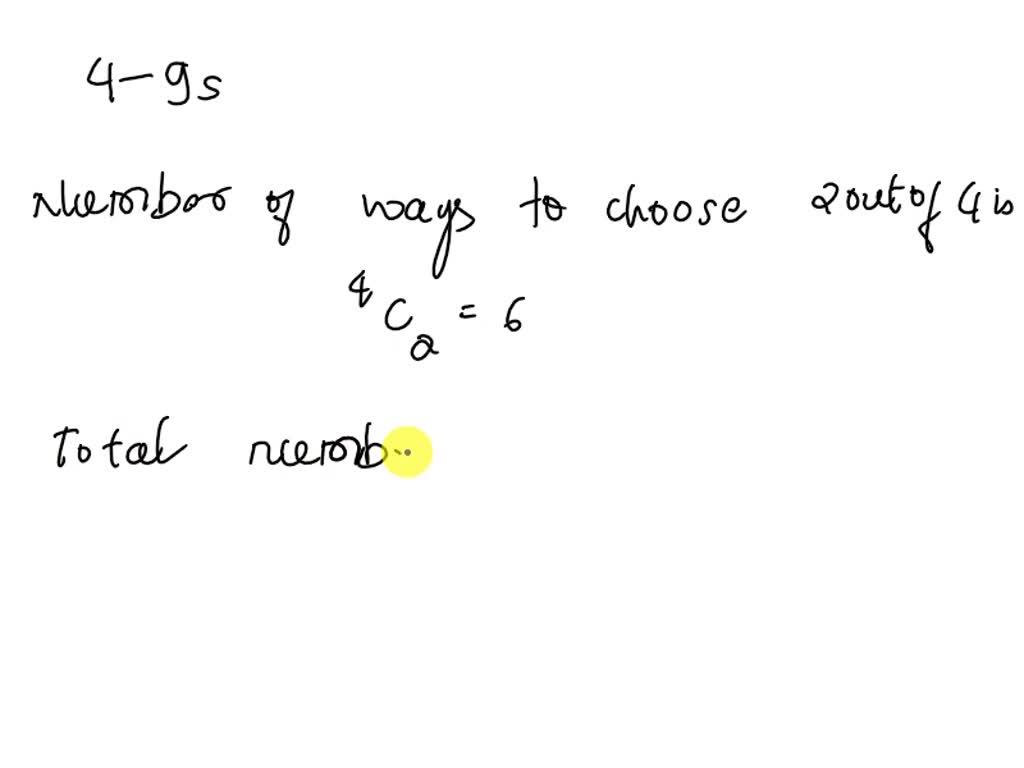 4-9s
Number of ways to choose 2 out of 4 is
⁴C₂ = 6
Total numb